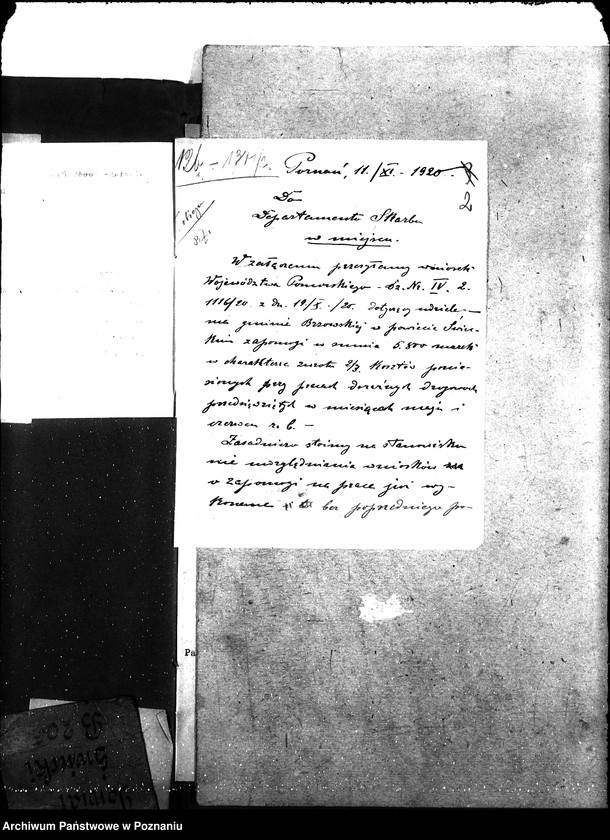 Poznań, 11./XI. - 1920.
2
Do
Departamentu Skarbu
w miejscu.
W załączeniu przesyłamy wniosek
Województwa Pomorskiego - Dz. Nr. IV. 2.
1116/20 z dn. 19/X./20. dotyczący udziele-
nia gminie Brzowskiej w powiecie Świec-
kim zapomogi w sumie 5.800 marek
w charakterze zwrotu 2/3 kosztów ponie-
sionych przy pracach doraźnych drogowych
przedsięwziętych w miesiącach maju i
czerwcu r. b. -
Zasadniczo stoimy na stanowisku
nie uwzględniania wniosków
o zapomogi na prace już wy-
konane bez poprzedniego po-
Pa
Świecki
Archiwum Państwowe w Poznaniu